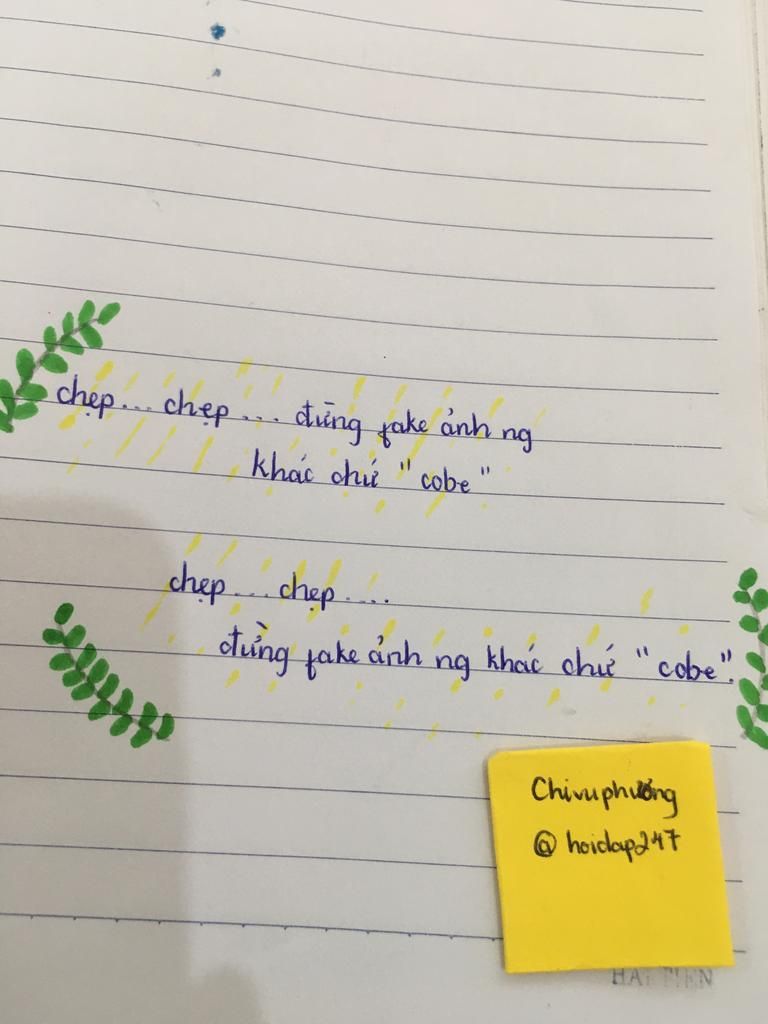 chẹp... chẹp... đừng fake ảnh ng
khác chứ "cobe"
chẹp... chẹp....
đừng fake ảnh ng khác chứ "cobe".
Chivuphương
@hoidap247
HẢI TIẾN